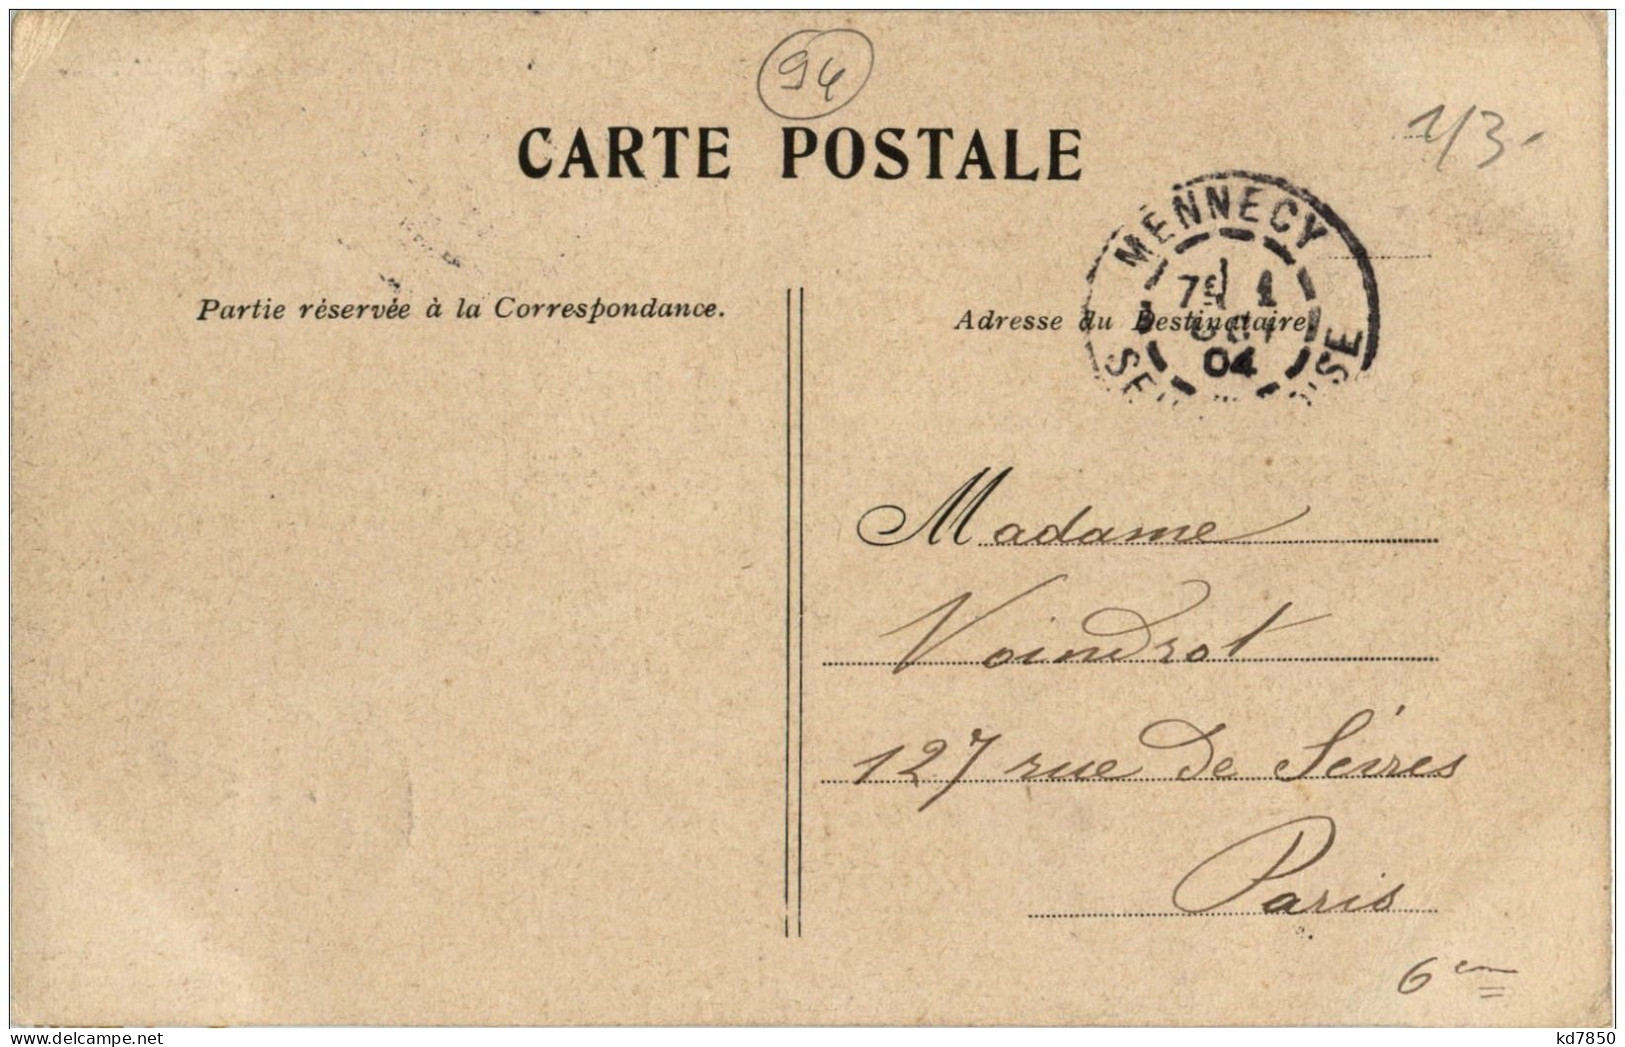 94
CARTE POSTALE
1/3.
MENNECY
7E 1
OCT
04
SEINE-ET-OISE
Partie réservée à la Correspondance.
Adresse du Destinataire
Madame
Voindrot
127 rue de Sèvres
Paris
6em
delcampe.net
kd7850